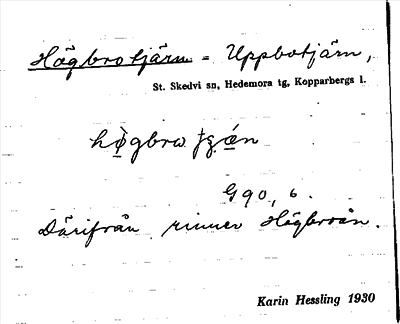 Högbrotjärn = Uppbotjärn,
St. Skedvi sn, Hedemora tg, Kopparbergs l.
G 90, 6.
Därifrån rinner Högbroån.
Karin Hessling 1930